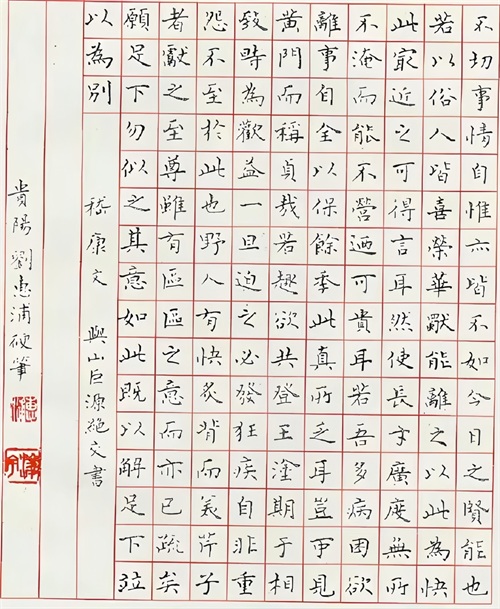 不切事情自惟亦皆不如今日之賢能也
若以俗人皆喜榮華獨能離之以此為快
此最近之可得言耳然使長才廣度無所
不淹而能不營迺可貴耳若吾多病困欲
離事自全以保餘年此真所乏耳豈可見
黄門而稱貞哉若趣欲共登王塗期于相
致時為歡益一旦迫之必發狂疾自非重
怨不至於此也野人有快炙背而美芹子
者獻之至尊雖有區區之意而亦已疏矣
願足下勿似之其意如此既以解足下竝
以為別 嵇康文 與山巨源絕交書
貴陽劉惠浦硬筆